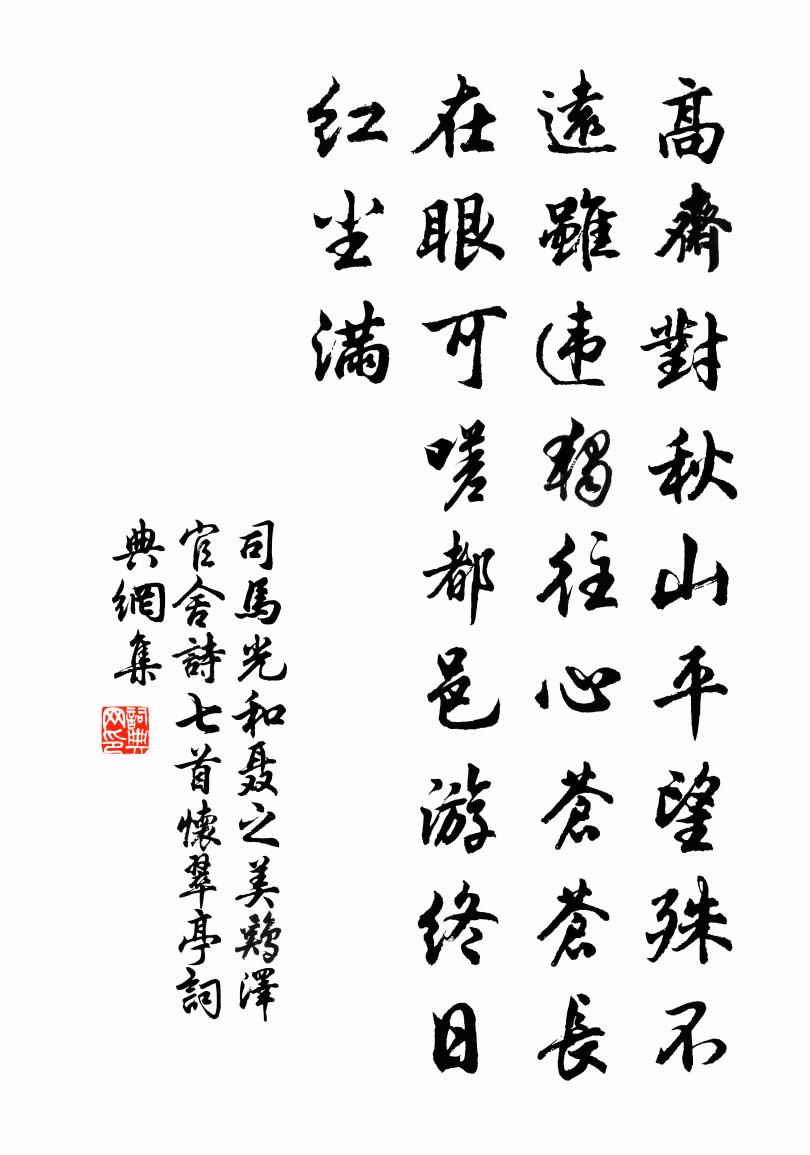 高齋對秋山平望殊不
遠雖违獨往心蒼蒼長
在眼可嗟都邑游終日
红尘滿
司馬光和聂之美鷄澤
官舍詩七首懷翠亭詞
典網集
詞典网印